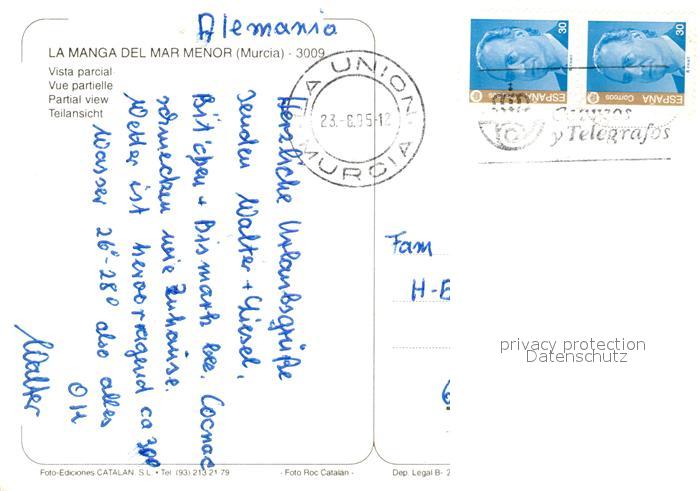 Alemania
LA MANGA DEL MAR MENOR (Murcia) - 3009
Vista parcial
Vue partielle
Partial view
Teilansicht
LA UNION
23.-6.95-12
MURCIA
30
30
ESPAÑA
Correos
ESPAÑA
Correos
y Telégrafos
Herzliche Urlaubsgrüße
senden Walter + Gisel.
Bit'chen + Bismark bez. Cocnac
schmecken wie Zuhause.
Wetter ist hervorragend ca 30°
Wasser 26°-28° also alles
OK
Walter
Fam
H-E
6
privacy protection
Datenschutz
Foto-Ediciones CATALAN, S.L. • Tel (93) 213 21 79
- Foto Roc Catalan -
Dep. Legal B- 2